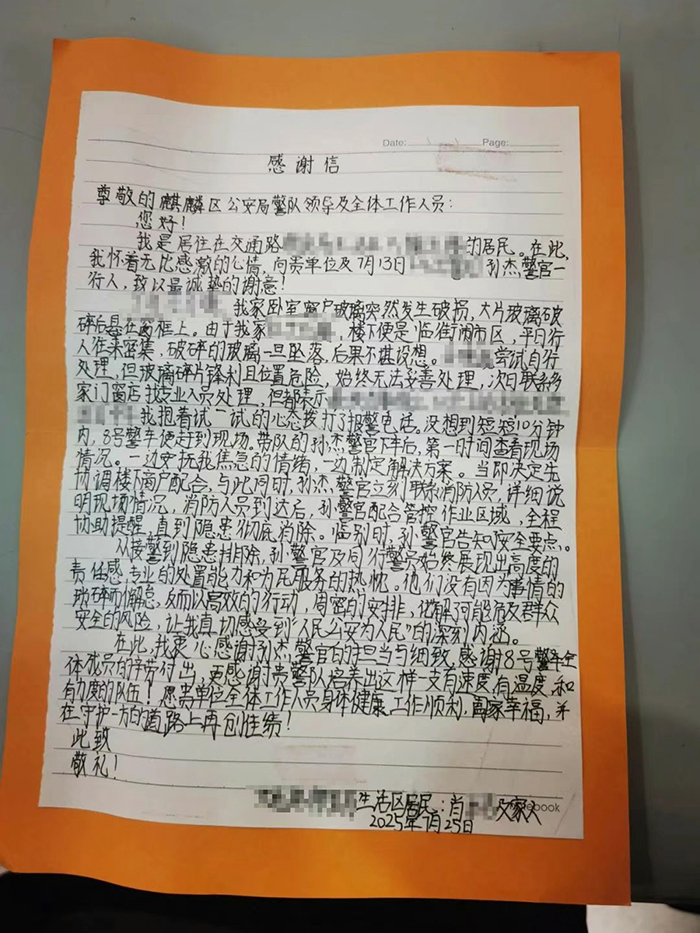 Date: Page:
感谢信
尊敬的麒麟区公安局警队领导及全体工作人员:
您好!
我是居住在交通路的居民。在此,
我怀着无比感激的心情,向贵单位及7月13日孙杰警官一
行人,致以最诚挚的谢意!
我家卧室窗户玻璃突然发生破损,大片玻璃破
碎后悬在窗框上。由于我家,楼下便是临街闹市区,平日行
人往来密集,破碎的玻璃一旦坠落,后果不堪设想。尝试自行
处理,但玻璃碎片锋利且位置危险,始终无法妥善处理,次日联系多
家门窗店找专业人员处理,但都表示
我抱着试一试的心态拨打了报警电话。没想到短短10分钟
内,8号警车便赶到现场,带队的孙杰警官下车后,第一时间查看现场
情况。一边安抚我焦急的情绪,一边制定解决方案。当即决定先
协调楼下商户配合,与此同时,孙杰警官立刻联系消防人员,详细说
明现场情况,消防人员到达后,孙警官配合管控作业区域,全程
协助提醒,直到隐患彻底消除。临别时,孙警官告知安全要点。
从接警到隐患排除,孙警官及同行警员始终展现出高度的
责任感,专业的处置能力和为民服务的热忱。他们没有因为事情的
琐碎而懈怠,反而以高效的行动,周密的安排,化解可能危及群众
安全的风险,让我真切感受到"人民公安为人民"的深刻内涵。
在此,我衷心感谢孙杰警官的担当与细致,感谢8号警车全
体成员的辛劳付出,更感谢贵警队培养出这样一支有速度,有温度,和
有力度的队伍!愿贵单位全体工作人员身体健康,工作顺利,阖家幸福,并
在守护一方的道路上再创佳绩!
此致
敬礼!
生活区居民:肖及家人
ebook
2025年7月25日